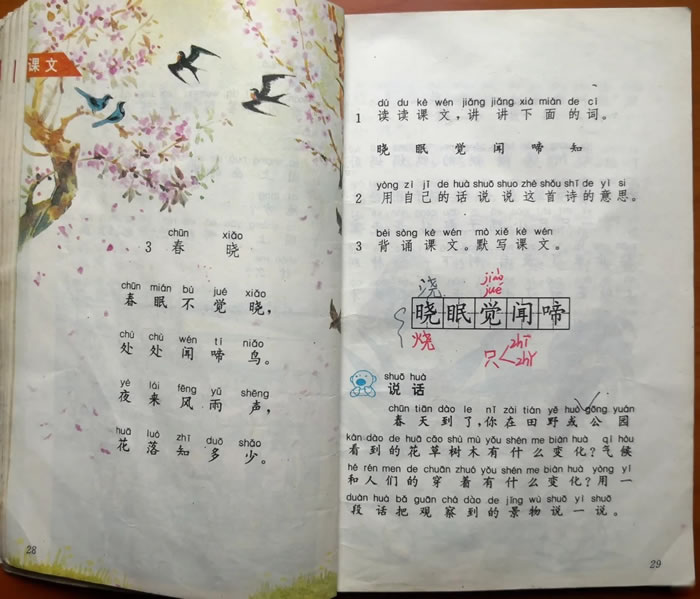 课文
chūn xiǎo
3 春 晓
chūn mián bù jué xiǎo
春眠不觉晓，
chù chù wén tí niǎo
处处闻啼鸟。
yè lái fēng yǔ shēng
夜来风雨声，
huā luò zhī duō shǎo
花落知多少。
28
dú du kè wén jiǎng jiǎng xià miàn de cí
1 读读课文，讲讲下面的词。
晓 眠 觉 闻 啼 知
yòng zì jǐ de huà shuō shuo zhè shǒu shī de yì si
2 用自己的话说说这首诗的意思。
bèi sòng kè wén mò xiě kè wén
3 背诵课文。默写课文。
浇 jiào
jué
晓眠觉闻啼
烧 只 zhī
zhǐ
shuō huà
说话
chūn tiān dào le nǐ zài tián yě huò gōng yuán
春天到了，你在田野或公园
kàn dào de huā cǎo shù mù yǒu shén me biàn huà qì hòu
看到的花草树木有什么变化？气候
hé rén men de chuān zhuó yǒu shén me biàn huà yòng yí
和人们的穿着有什么变化？用一
duàn huà bǎ guān chá dào de jǐng wù shuō yi shuō
段话把观察到的景物说一说。
29